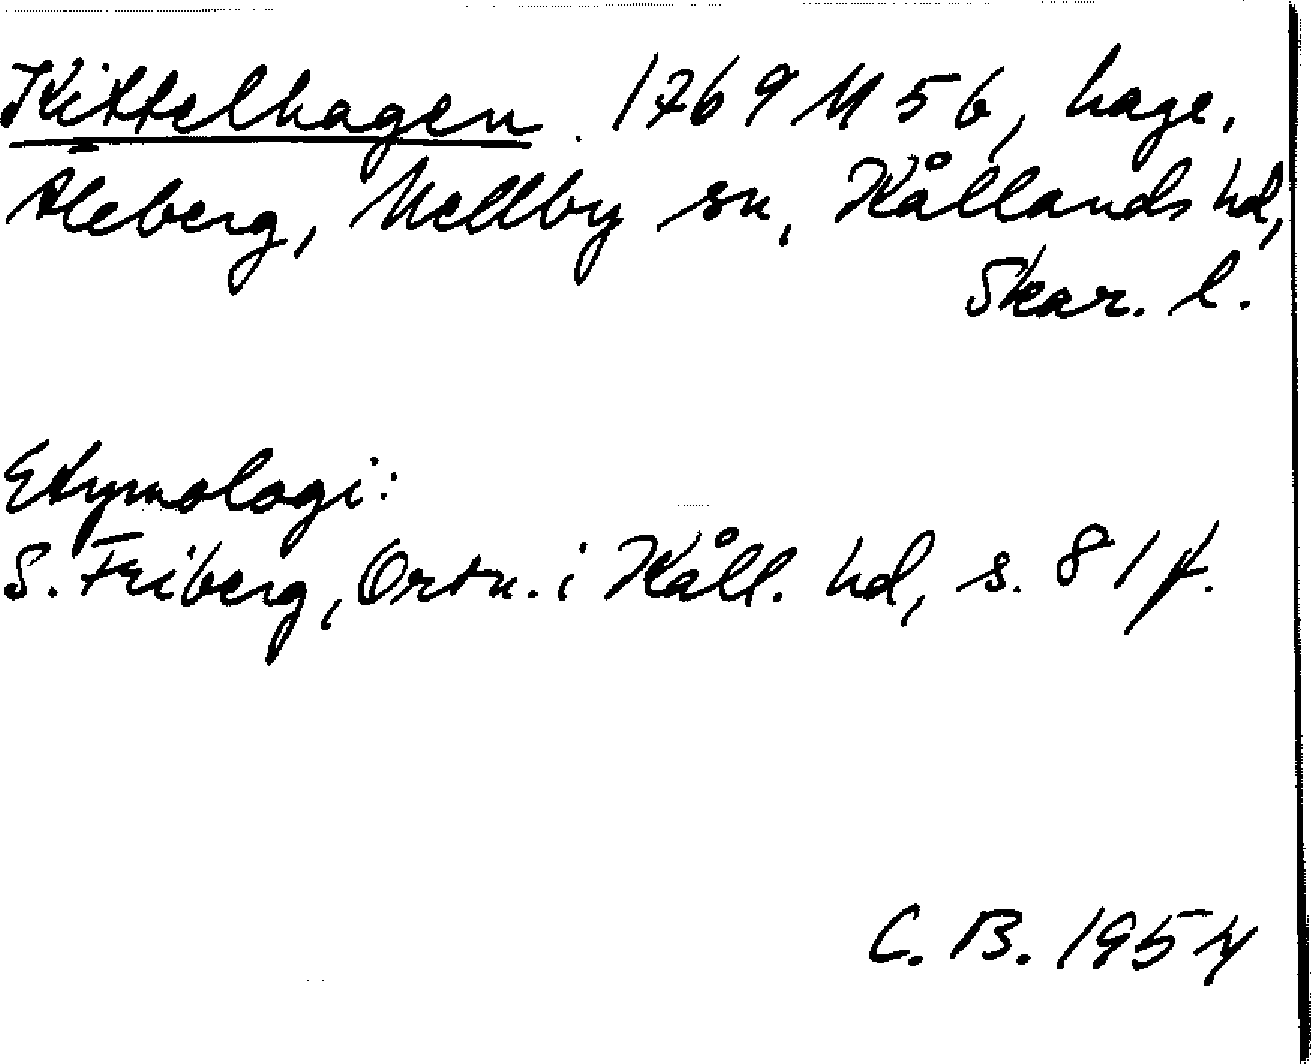 Kittelhagen. 1769 M 56, hage.
Åleberg, Mellby sn, Kållands hd,
Skar. l.
Etymologi:
S. Friberg, Ortn. i Kåll. hd, s. 81 f.
C. B. 1954